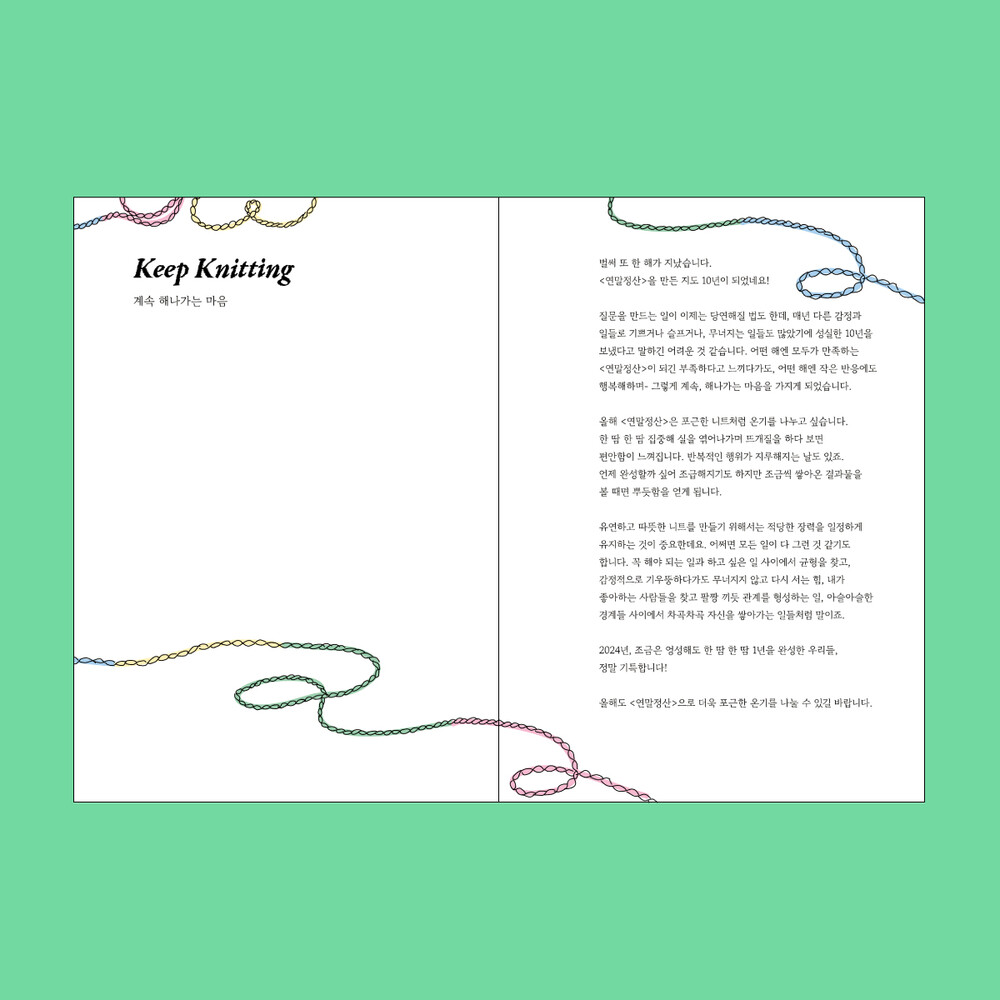 Keep Knitting
계속 해나가는 마음
벌써 또 한 해가 지났습니다.
<연말정산>을 만든 지도 10년이 되었네요!
질문을 만드는 일이 이제는 당연해질 법도 한데, 매년 다른 감정과
일들로 기쁘거나 슬프거나, 무너지는 일들도 많았기에 성실한 10년을
보냈다고 말하긴 어려운 것 같습니다. 어떤 해엔 모두가 만족하는
<연말정산>이 되긴 부족하다고 느끼다가도, 어떤 해엔 작은 반응에도
행복해하며- 그렇게 계속, 해나가는 마음을 가지게 되었습니다.
올해 <연말정산>은 포근한 니트처럼 온기를 나누고 싶습니다.
한 땀 한 땀 집중해 실을 엮어나가며 뜨개질을 하다 보면
편안함이 느껴집니다. 반복적인 행위가 지루해지는 날도 있죠.
언제 완성할까 싶어 조급해지기도 하지만 조금씩 쌓아온 결과물을
볼 때면 뿌듯함을 얻게 됩니다.
유연하고 따뜻한 니트를 만들기 위해서는 적당한 장력을 일정하게
유지하는 것이 중요한데요. 어쩌면 모든 일이 다 그런 것 같기도
합니다. 꼭 해야 되는 일과 하고 싶은 일 사이에서 균형을 찾고,
감정적으로 기우뚱하다가도 무너지지 않고 다시 서는 힘, 내가
좋아하는 사람들을 찾고 팔짱 끼듯 관계를 형성하는 일, 아슬아슬한
경계들 사이에서 차곡차곡 자신을 쌓아가는 일들처럼 말이죠.
2024년, 조금은 엉성해도 한 땀 한 땀 1년을 완성한 우리들,
정말 기특합니다!
올해도 <연말정산>으로 더욱 포근한 온기를 나눌 수 있길 바랍니다.